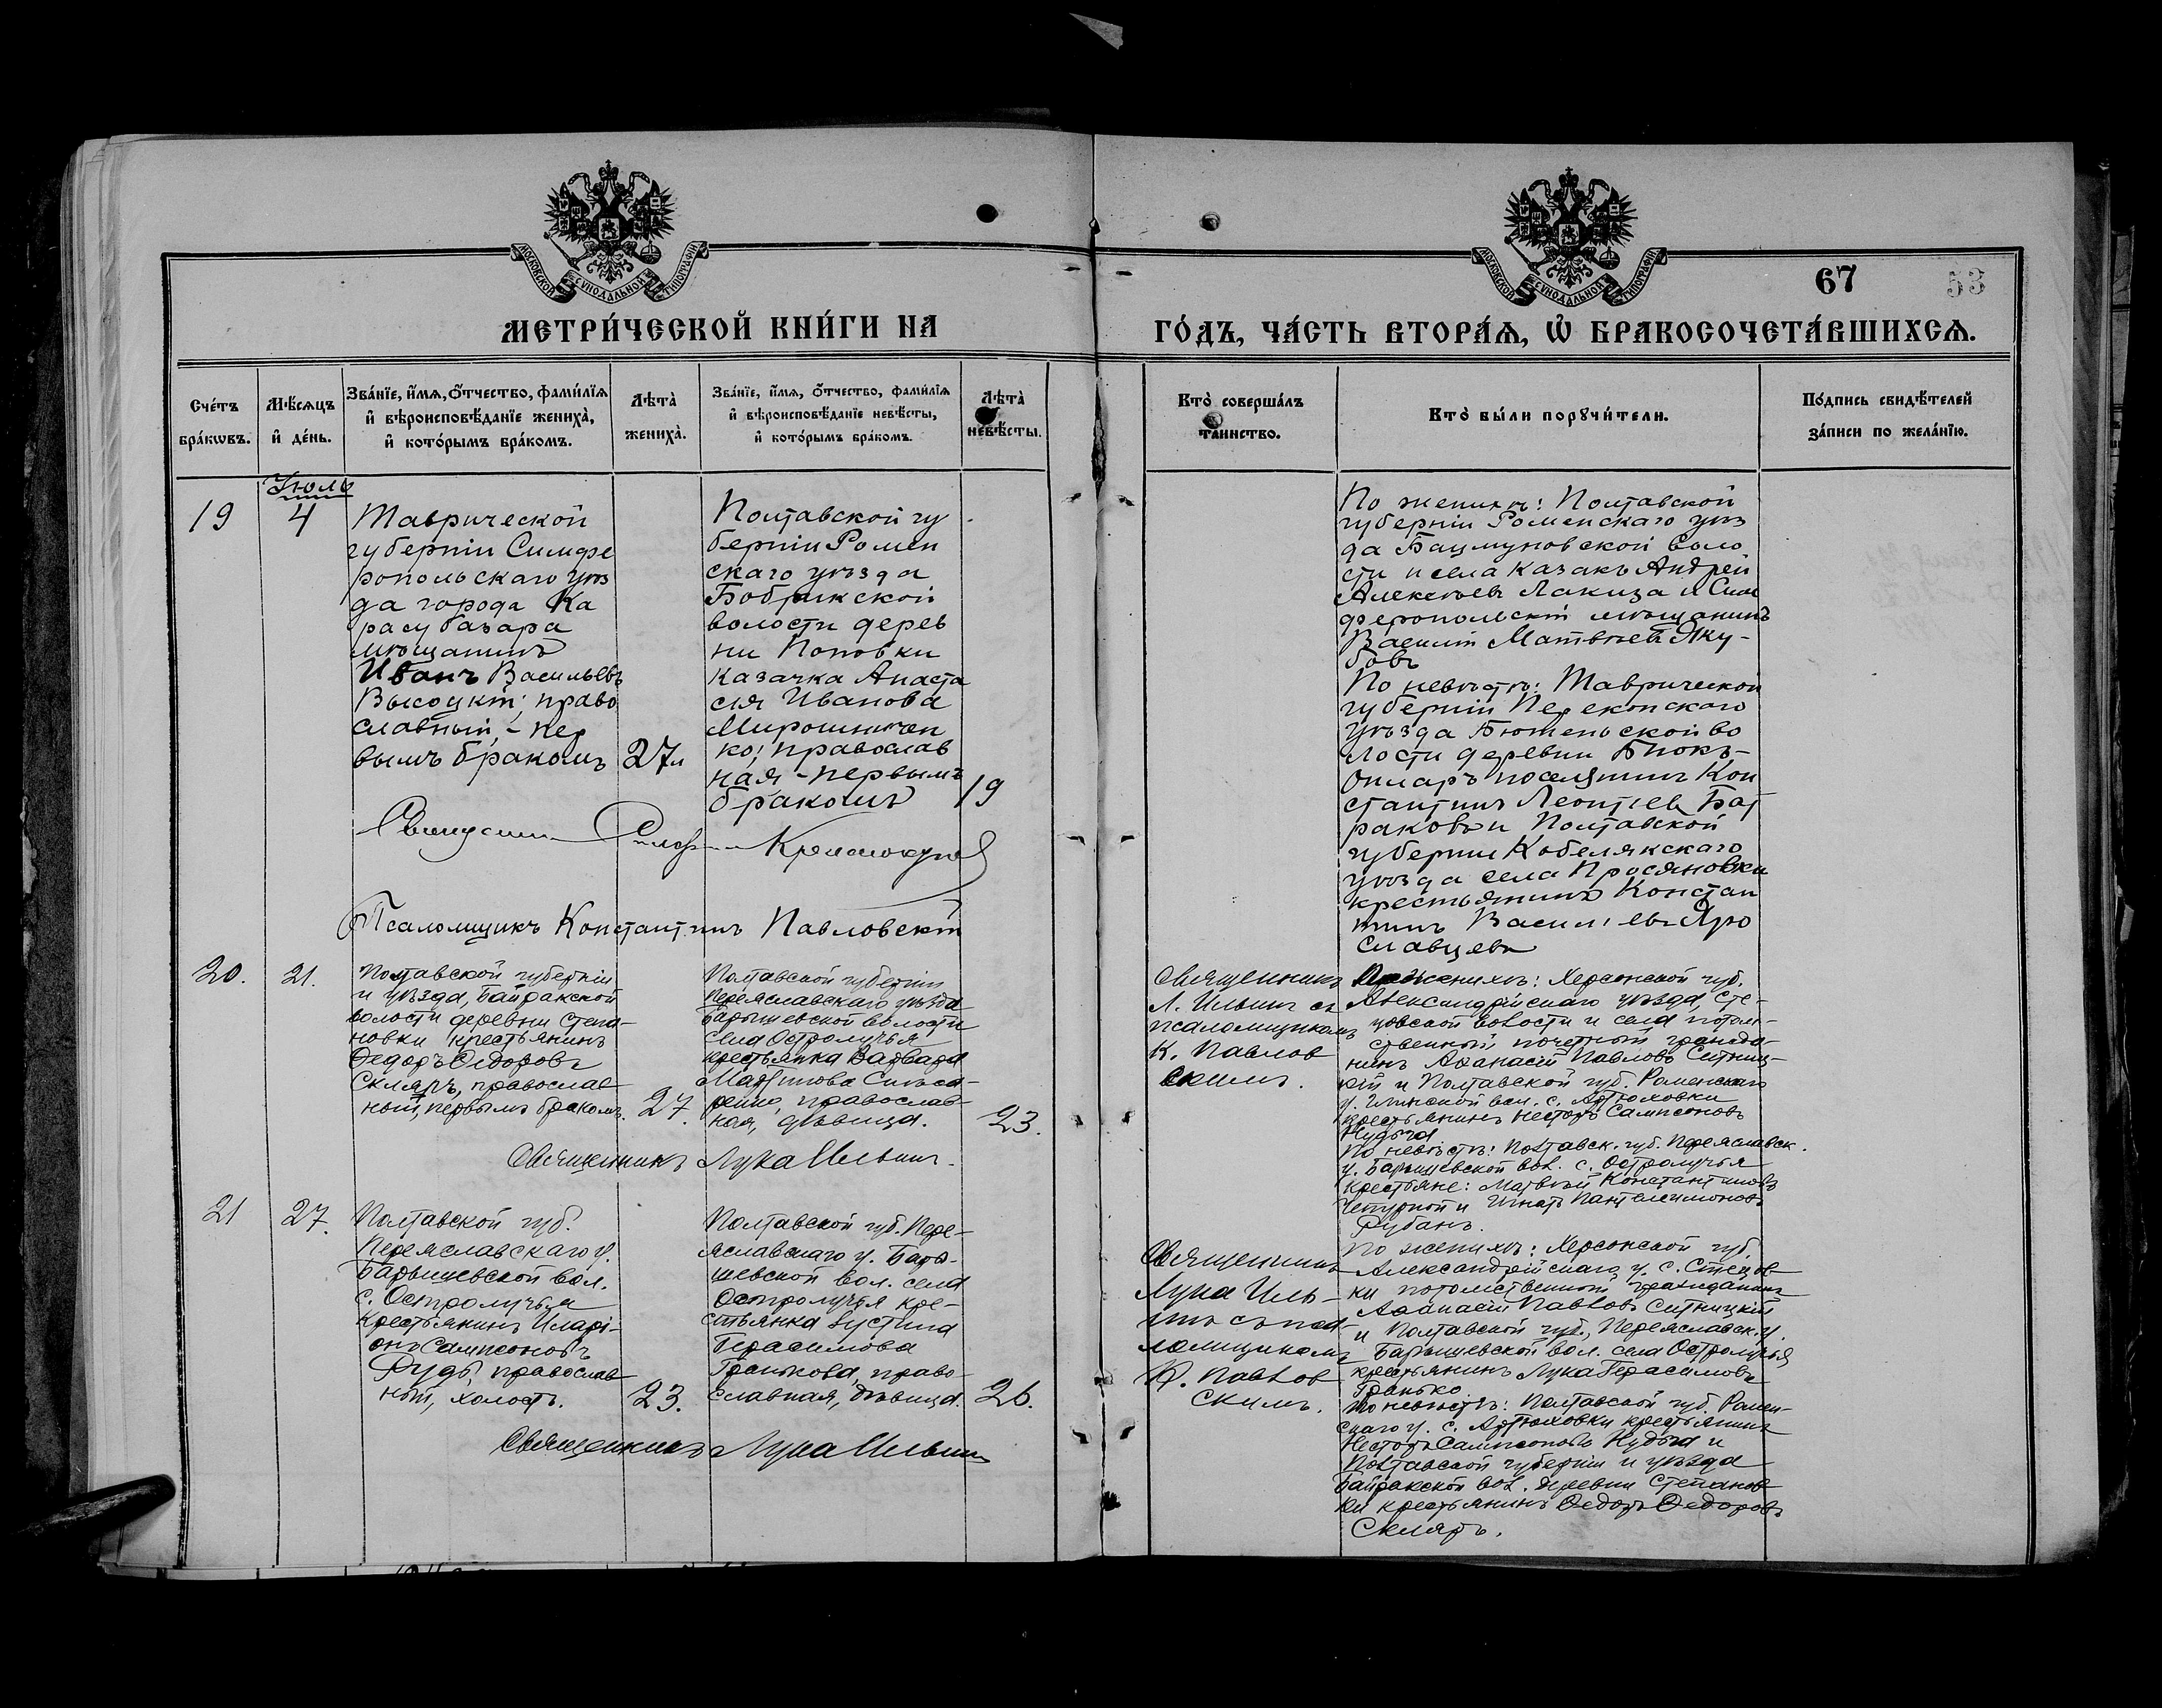 МОСКОВСКОЙ СѴНОДАЛЬНОЙ ТИПОГРАФІИ
МОСКОВСКОЙ СѴНОДАЛЬНОЙ ТИПОГРАФІИ
67 53
МЕТРИ́ЧЕСКОЙ КНИ́ГИ НА
ГО́ДЪ, ЧА́СТЬ ВТОРА́Ѧ, Ѡ҆ БРАКОСОЧЕТА́ВШИХСѦ.
Сче́тъ
бра́кѡвъ.
Мѣ́сѧцъ
и҆ де́нь.
Зва́нїе, и҆́мѧ, ѻ҆́тчество, фами́лїѧ
и҆ вѣроисповѣ́данїе жениха̀,
и҆ кото́рымъ бра́комъ.
Лѣта̀
жениха̀.
Зва́нїе, и҆́мѧ, ѻ҆́тчество, фами́лїѧ
и҆ вѣроисповѣ́данїе невѣ́сты,
и҆ кото́рымъ бра́комъ.
Лѣта̀
невѣ́сты.
Кто̀ соверша́лъ
та́инство.
Кто̀ бы́ли порꙋчи́тели.
По́дпись свидѣ́телей
за́писи по жела́нїю.
Іюль
19
4
Таврической
губерніи Симфе
ропольскаго уѣз
да города Ка
расубазара
мѣщанинъ
Иванъ Васильевъ
Высоцкій; право
славный, - пер
вымъ бракомъ
27л
Полтавской гу
берніи Ромен
скаго уѣзда
Бобрикской
волости дерев
ни Поповки
казачка Анаста
сія Иванова
Мирошничен
ко; православ
ная - первымъ
бракомъ
19
Псаломщикъ Константинъ Павловскій
По женихѣ: Полтавской
губерніи Роменскаго уѣз
да Бацмуновской воло
сти и села казакъ Андрей
Алексѣевъ Лакиза и Сим
феропольскій мѣщанинъ
Василій Матвѣевъ Яку-
бовъ
По невѣстѣ: Таврической
губерніи Перекопскаго
уѣзда Бютеньской во
лости деревни Біюкъ-
Онларъ поселянинъ Кон
стантинъ Леонтіевъ Бат
раковъ и Полтавской
губерніи Кобелякскаго
уѣзда села Просяновки
крестьянинъ Констан
тинъ Васильевъ Яро
славцевъ
20.
21.
Полтавской губерніи
и уѣзда, Байракской
волости деревни Степа-
новки крестьянинъ
Ѳедоръ Ѳедоровъ
Скляръ, православ
ный, первымъ бракомъ.
27.
Полтавской губерніи
Переяславскаго уѣзда
Барышевской волости
села Остролучья
крестьянка Варвара
Мартинова Слюса-
ренко, православ-
ная, дѣвица.
23.
Священникъ Лука Ильинъ.
Священникъ
Л. Ильинъ съ
псаломщикомъ
К. Павлов
скимъ.
По женихѣ: Херсонской губ.
Александрійскаго уѣзда, Сте-
цовской волости и села потом-
ственный почетный гражда-
нинъ Аѳанасій Павловъ Ситниц-
кій и Полтавской губ. Роменскаго
у. Глинской вол. с. Артюховки
крестьянинъ Несторъ Сампсоновъ
Кудыа
По невѣстѣ: Полтавск. губ. Переяславск.
у. Барышевской вол. с. Остролучья
крестьяне: Матвѣй Константиновъ
Чепурной и Игнатъ Пантелеимоновъ
Рубанъ.
21
27.
Полтавской губ.
Переяславскаго у.
Барышевской вол.
с. Остролучья
крестьянинъ Иларі-
онъ Сампсоновъ
Рудь, православ
ный, холостъ.
23.
Полтавской губ. Пере-
яславскаго у. Бары-
шевской вол. села
Остролучья кре-
стьянка Іустина
Герасимова
Гранькова, право-
славная, дѣвица.
26.
Священникъ Лука Ильинъ
Священникъ
Лука Иль-
инъ съ пса-
ломщикомъ
К. Павлов
скимъ.
По женихѣ: Херсонской губ.
Александрійскаго у. с. Стецов
ки потомственный гражданинъ
Аѳанасій Павловъ Ситницкій
и Полтавской губ., Переяславск. у.
Барышевской вол. села Остролучья
крестьянинъ Лука Герасимовъ
Гранько.
По невѣстѣ: Полтавской губ. Ромен-
скаго у. с. Артюховки крестьянинъ
Несторъ Сампсоновъ Кудыа и
Полтавской губерніи и уѣзда
Байракской вол. деревни Степанов
ки крестьянинъ Ѳедоръ Ѳедоровъ
Скляръ.